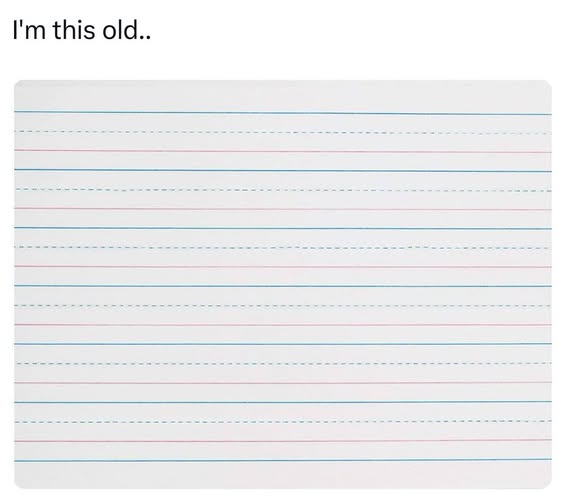 I'm this old..